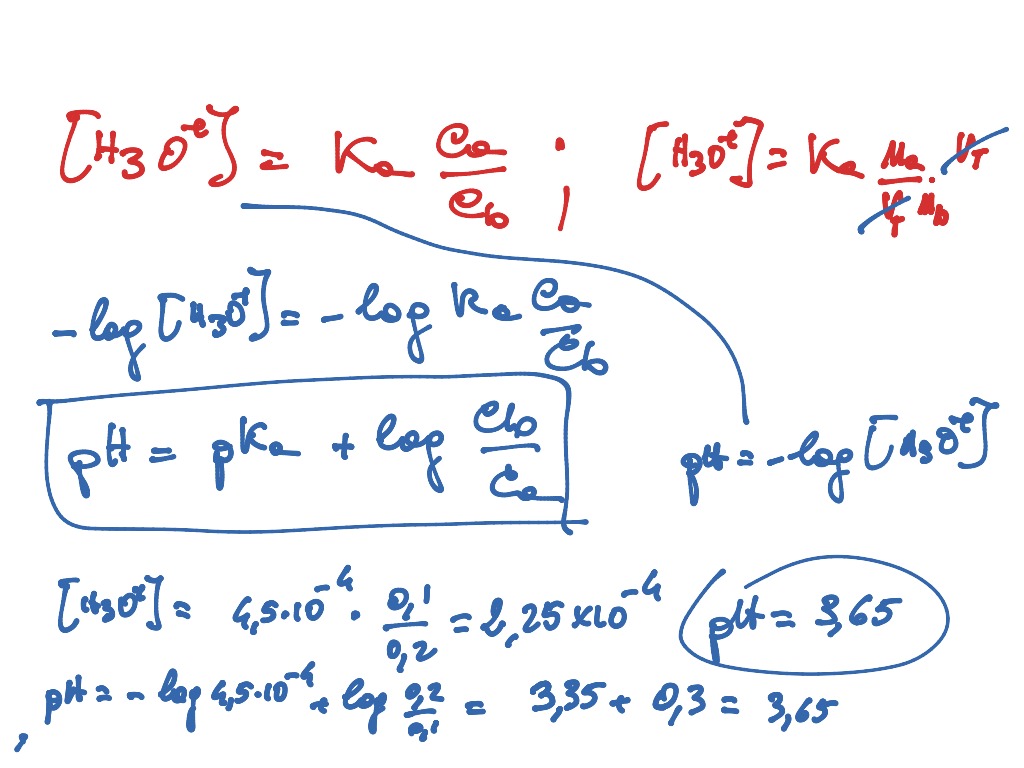 [H₃O⁺] = Ka Ca/Cb ; [H₃O⁺] = Ka na/VT · VT/nb
-log [H₃O⁺] = -log Ka Ca/Cb
pH = pKa + log Cb/Ca
pH = -log [H₃O⁺]
[H₃O⁺] = 4,5·10⁻⁴ · 0,1/0,2 = 2,25 x10⁻⁴ pH = 3,65
pH = - log 4,5·10⁻⁴ + log 0,2/0,1 = 3,35 + 0,3 = 3,65